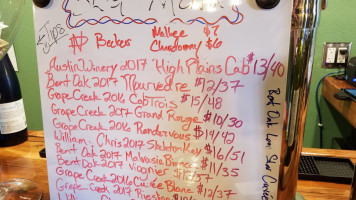 Tips
Becker Malbec $7
Chardonnay $6
Austin Winery 2017 High Plains Cab $13/40
Bent Oak 2017 Mourvedre $12/37
Grape Creek 2016 Cabtrois $15/48
Grape Creek 2017 Grand Rouge $10/30
Grape Creek 2016 Rendezvous $14/42
William Chris 2017 Skeleton Key $16/51
Bent Oak 2017 Malvasia Bianca $11/35
Bent Oak 2017 Viognier
Grape Creek 2016 Cuvee Blanc $12/37
Grape Creek 2017
Bent Oak Lone Star